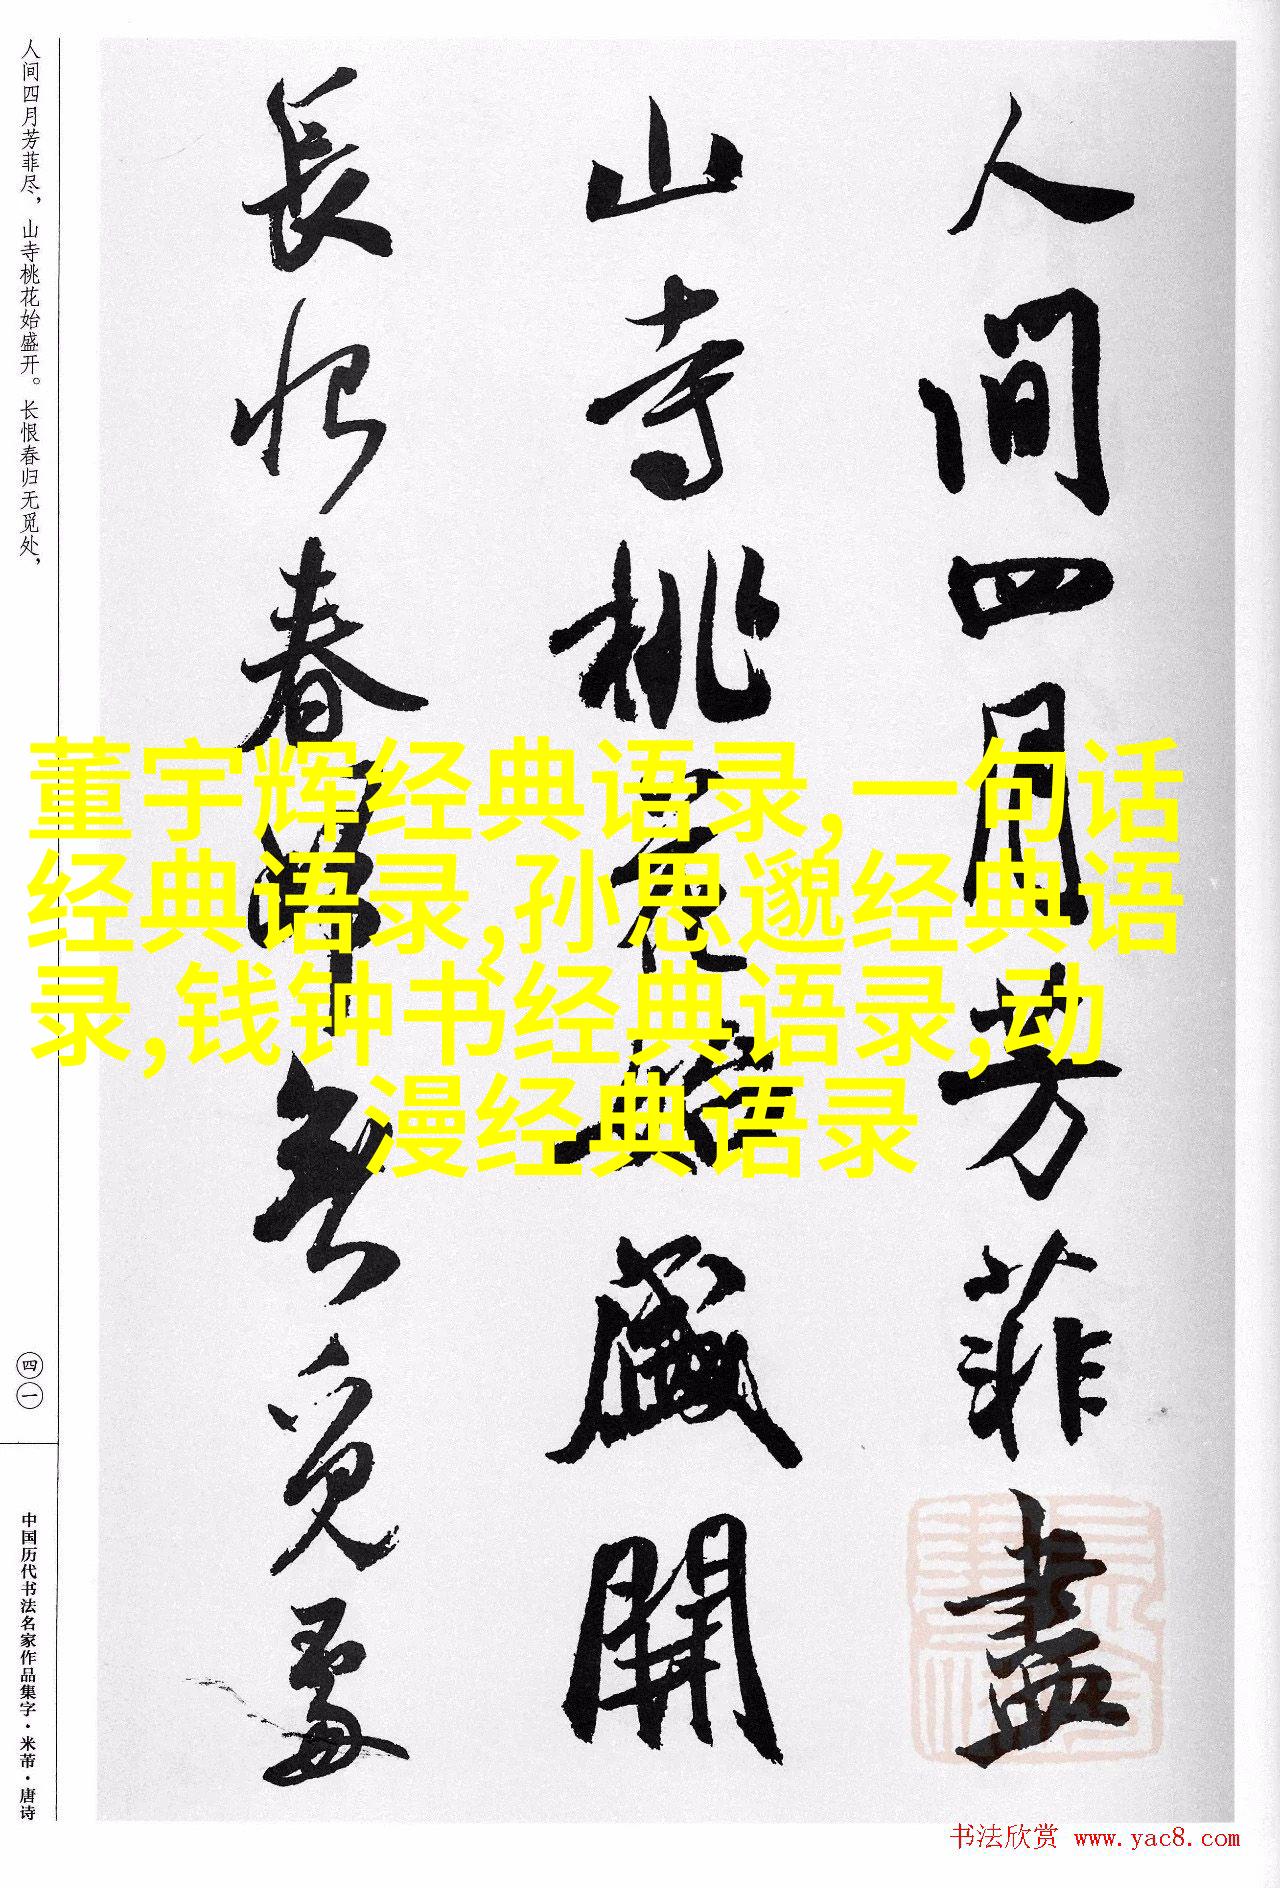 人間四月芳菲盡
山寺桃花始盛開
長恨春歸無覓處
人间四月芳菲尽，山寺桃花始盛开。长恨春归无觅处，
四一
中国历代书法名家作品集字·米芾·唐诗
董宇辉经典语录,一句话
经典语录,孙思邈经典语
录,钱钟书经典语录,动
漫经典语录
书法欣赏 www.yac8.com